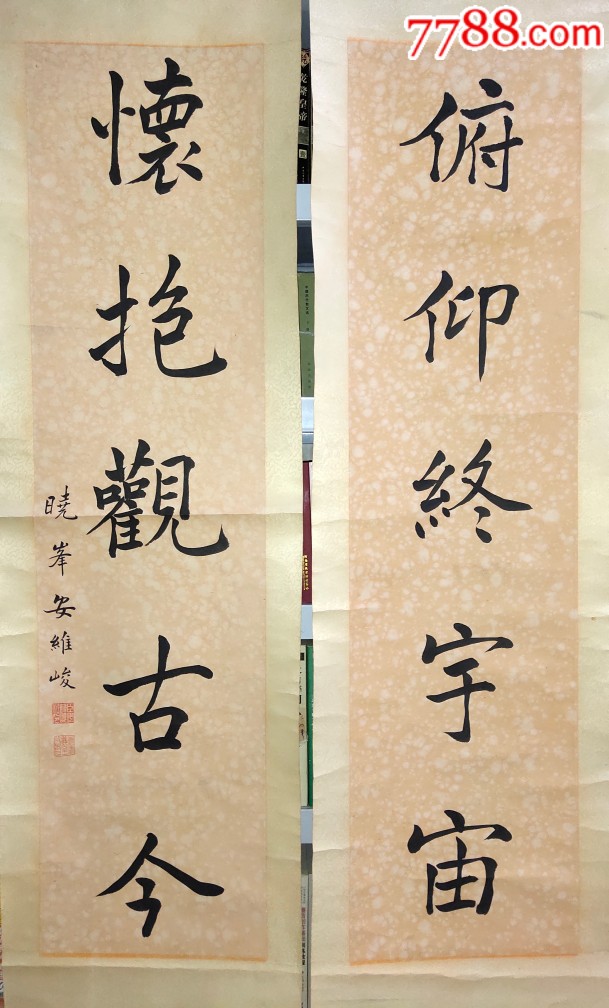 7788.com
俯仰終宇宙
懷抱觀古今
曉峯安維峻